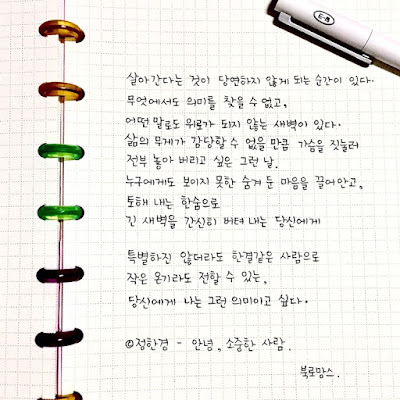 E-B
살아간다는 것이 당연하지 않게 되는 순간이 있다.
무엇에서도 의미를 찾을 수 없고,
어떤 말로도 위로가 되지 않는 새벽이 있다.
삶의 무게가 감당할 수 없을 만큼 가슴을 짓눌러
전부 놓아 버리고 싶은 그런 날.
누구에게도 보이지 못한 숨겨 둔 마음을 끌어안고,
토해 내는 한숨으로
긴 새벽을 간신히 버텨 내는 당신에게
특별하진 않더라도 한결같은 사람으로
작은 온기라도 전할 수 있는,
당신에게 나는 그런 의미이고 싶다.
©정한경 - 안녕, 소중한 사람.
북로망스.